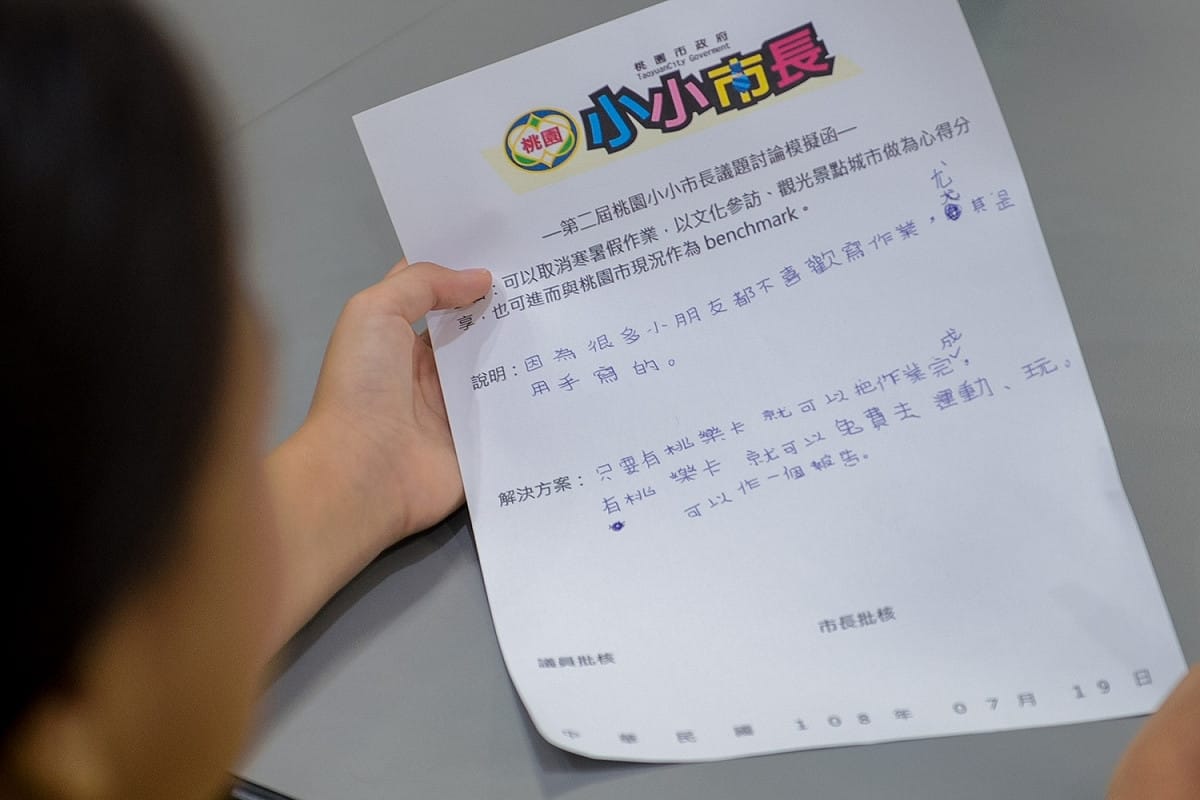 桃園市政府
TaoyuanCity Goverment
桃園
小小市長
—第二屆桃園小小市長議題討論模擬函—
：可以取消寒暑假作業，以文化參訪、觀光景點城市做為心得分
享，也可進而與桃園市現況作為 benchmark。
說明：因為很多小朋友都不喜歡寫作業，尤其是
用手寫的。
解決方案：只要有桃樂卡 就可以把作業完成，
有桃樂卡 就可以免費去運動、玩。
可以作一個報告。
市長批核
議員批核
中華民國108年07月19日